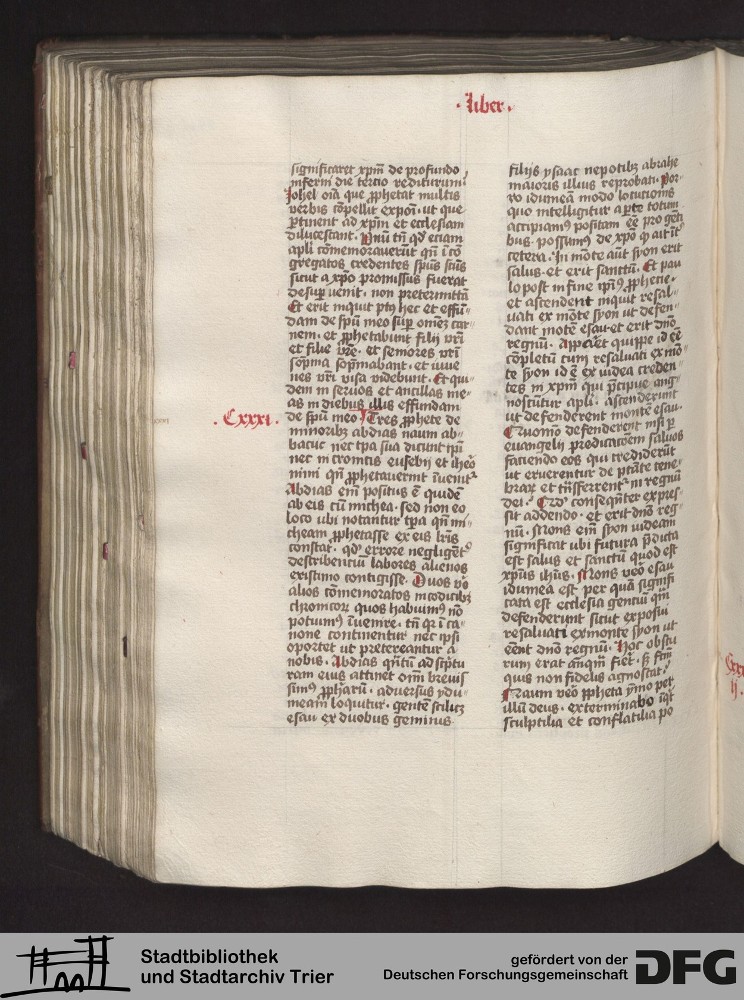 · Liber ·
significaret xpm̄ de profundo
inferni die tercio rediturum
Johel oīa que ꝓphetat multis
verbis cōpellit expoń · ut que
ꝑtinent ad xpm̄ et ecclesiam
dilucescant · Vnū tn̄ qd̓ eciam
apli cōmemorauerūt qn̄ ī cō
gregatos credentes spūs scūs
sicut a xpō promissus fuerat
desuꝑ venit · non pretermittā
Et erit inquit ptꝰ hec et effū
dam de spū meo suꝑ omnē car
nem · et ꝓphetabunt filij vr̄i
et filie vr̄e · et seniores vr̄i
sōpnia sōpniabant · et iuue
nes vr̄i visa videbunt · Et qui
dem in seruos et ancillas me
as in diebus illis effundam
· Cxxxi · de spū meo · Tres ꝓphete de
minoribꝫ abdias naum ab
bacuc nec tpa sua dicunt ipī
nec in cronicis eusebij et iheō
nimi qn̄ ꝓphetauerint īuenitʳ
Abdias eīm positus ē quidē
ab eis cū michea · sed non eo
loco vbi notantur tpa qn̄ mi
cheam ꝓphetasse ex eis lr̄is
constat · qd̓ errore negligent̓
describenciū labores alienos
existimo contigisse · Duos v̓o
alios cōmemoratos in codicibꝫ
chronicoꝝ quos habuimꝰ nō
potuimꝰ inuenire · tn̄ qꝛ ī ca
none continentur nec ipsi
oportet ut pretereantur a
nobis · Abdias qn̄tū ad sc̓ptu
ram eius attinet oīm breuis
simꝰ ꝓphaꝝ · aduersus ydu
meam loquitur · gentē scilicꝫ
esau ex duobus geminis
filijs ysaac nepotibꝫ abrahe
maioris illius reprobati · Por
ro idumeā modo locutionis
quo intelligitur a parte totum
accipiamꝰ positam eē pro genti
bus · possumꝰ de xpō
cetera · In mōte aūt syon erit
salus · et erit sanctū · Et pau
lo post in fine ipīꝰ ꝓphecie ·
et ascendent inquit resal
uati ex mōte syon ut defen
dant motē esau · et erit dnō
regnū · Apparet quippe id eē
cōpletū cum resaluati ex mō
te syon id ē ex iudea creden
tes in xpm̄ qui p̄cipue ang
noscūtur apli · ascenderunt
ut defenderent montē esau ·
Cuomō defenderent nisi ꝑ
euangelij predicacōem saluos
faciendo eos qui crediderūt
ut eruerentur de ptāte tene
braꝝ et trāsferrentʳ in regnū
dei · Qd̓ consequn̄ter expres
sit addendo · et erit dnō reg
nū · Mons eīm syon iudeam
significat vbi futura p̄dicta
est salus et sanctū quod est
xpūs ih̄us · Mons veo esau
idumea est per quā signifi
cata est ecclesia genciū qm̄
defenderunt sicut exposui
resaluati ex monte syon ut
eēnt dnō regnū · Hoc obscu
rum erat anq̄m fieret ·
quis non fidelis agnoscat ·
Naum veo ppheta ymo per
illū deus · exterminabo inq̄t
sculptilia et conflatilia po
Cxxx
ij ·
Stadtbibliothek
und Stadtarchiv Trier
gefördert von der
Deutschen Forschungsgemeinschaft
DFG